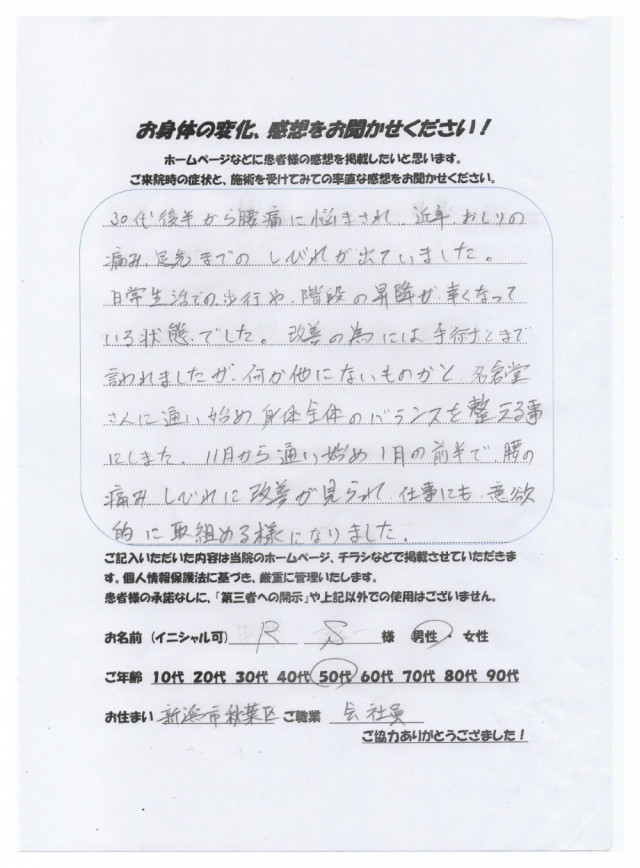 お身体の変化、感想をお聞かせください！
ホームページなどに患者様の感想を掲載したいと思います。
ご来院時の症状と、施術を受けてみての率直な感想をお聞かせください。
30代後半から腰痛に悩まされ、近年、おしりの
痛み、足先までの しびれが出ていました。
日常生活での歩行や、階段の昇降が、辛くなって
いる状態、でした。改善の為には 手術するとまで
言われましたが、何か他にないものかと 名倉堂
さんに通い始め 身体全体のバランスを整える事
にしました。11月から通い始め 1月の前半で、腰の
痛み しびれに 改善が見られ 仕事にも、意欲
的に取組める様になりました。
ご記入いただいた内容は当院のホームページ、チラシなどで掲載させていただきま
す。個人情報保護法に基づき、厳重に管理いたします。
患者様の承諾なしに、「第三者への開示」や上記以外での使用はございません。
お名前（イニシャル可） R S 様 男性 ・ 女性
ご年齢 10代 20代 30代 40代 50代 60代 70代 80代 90代
お住まい 新潟市秋葉区 ご職業 会社員
ご協力ありがとうござました！